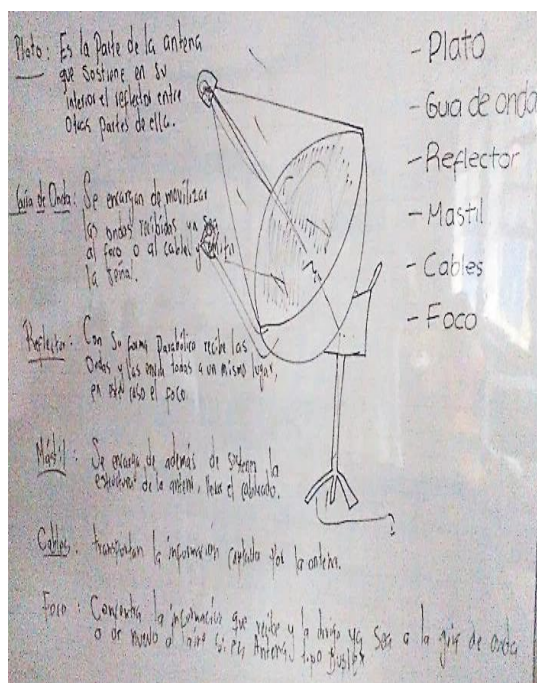 Plato: Es la Parte de la antena
que sostiene en su
interior el reflector entre
Otras partes de ella.
Guia de Onda: Se encargan de movilizar
las ondas recibidas ya sea
al foco o al cable y
la
Reflector: Con su forma Parabolica recibe las
Ondas y las envia todas a un mismo lugar,
en este caso el foco.
Mástil: Se encarga de además de sostener la
estructura de la antena, lleva el cableado.
Cables: transportan la información captada por la antena.
Foco: Concentra la información que recibe y la dirige ya sea a la guia de onda
o de nuevo al aire si es Antena tipo
- Plato
- Guia de onda
- Reflector
- Mastil
- Cables
- Foco